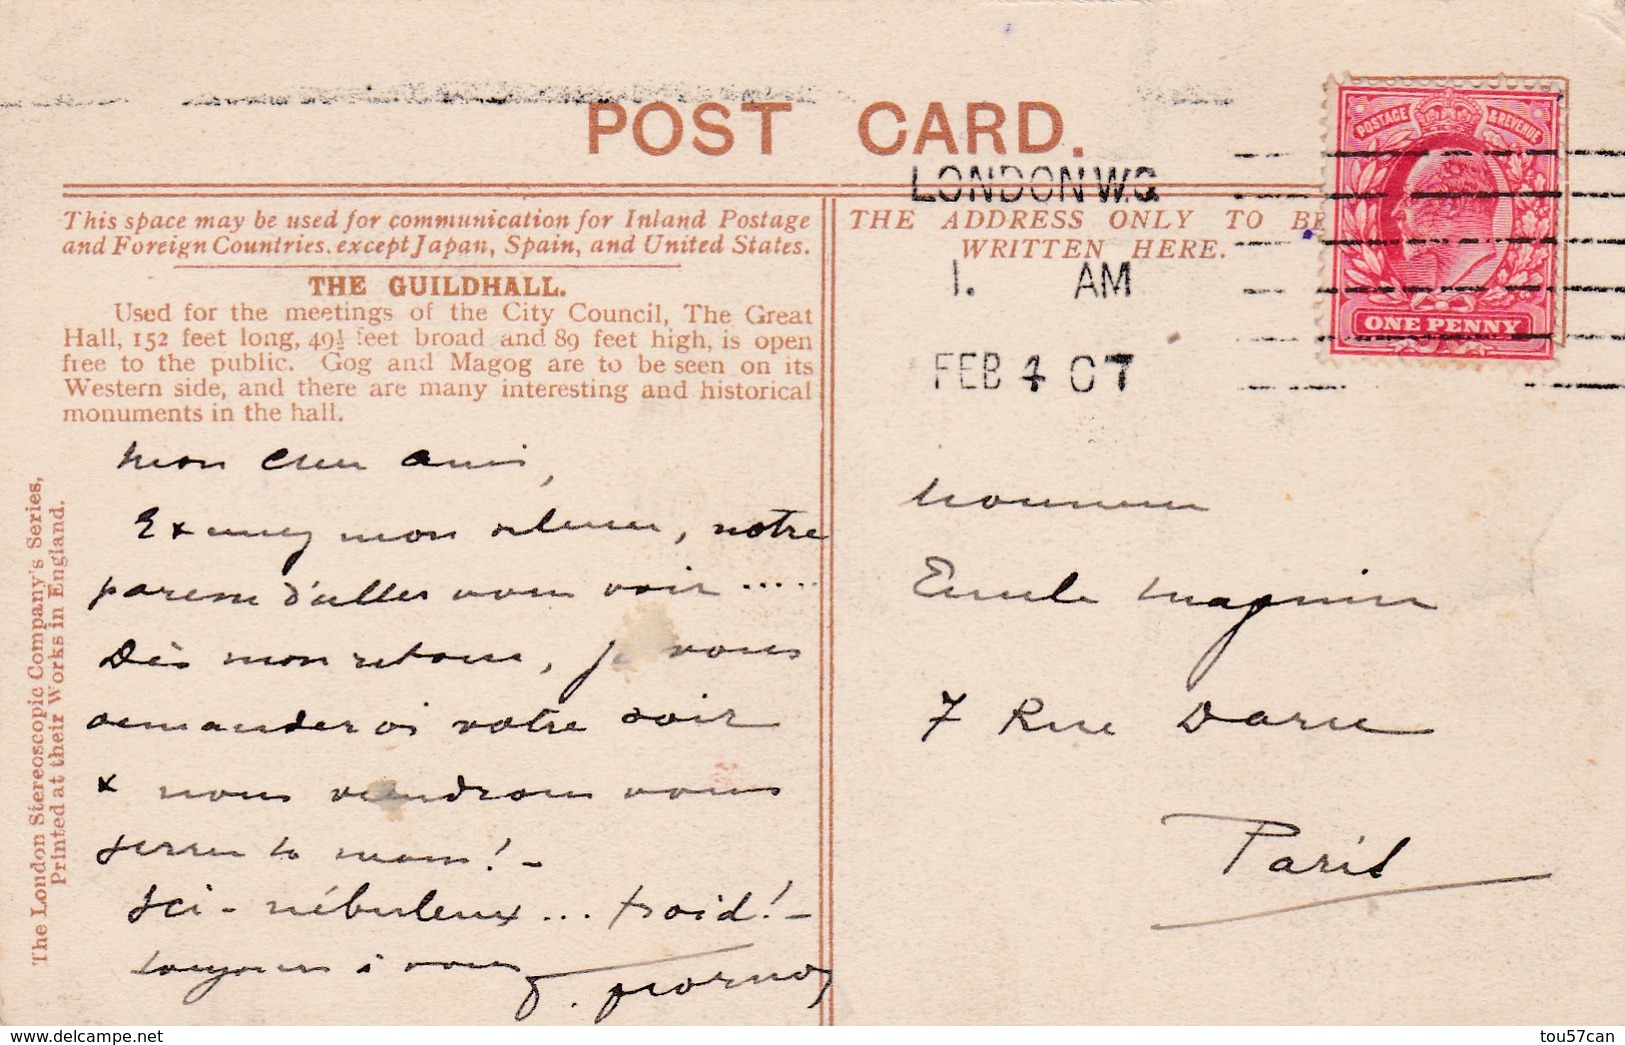 POST CARD.
LONDON W.C
POSTAGE & REVENUE
ONE PENNY
1. AM
FEB 4 07
This space may be used for communication for Inland Postage
and Foreign Countries, except Japan, Spain, and United States.
THE ADDRESS ONLY TO BE
WRITTEN HERE.
THE GUILDHALL.
Used for the meetings of the City Council, The Great
Hall, 152 feet long, 49½ feet broad and 89 feet high, is open
free to the public. Gog and Magog are to be seen on its
Western side, and there are many interesting and historical
monuments in the hall.
The London Stereoscopic Company's Series,
Printed at their Works in England.
Mon cher ami,
Excusez mon silence, notre
paresse d'aller vous voir .....
Dès mon retour, je vous
demanderai votre soir
& nous viendrons vous
serrer la main! -
Ici - nébuleux ... froid! -
toujours à vous
Monsieur
Emile Magnin
7 Rue Daru
Paris
www.delcampe.net
tou57can